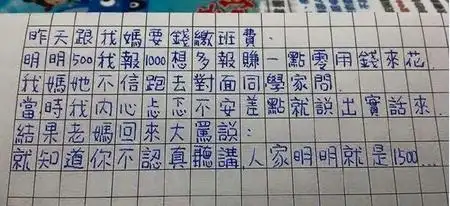 昨天跟我媽要錢繳班費.
明明500我報1000想多報賺一點零用錢來花.
我媽她不信跑去對面同學家問.
當時我內心忐忑不安差點就說出實話來.
結果老媽回來大罵說:
就知道你不認真聽講,人家明明就是1500...